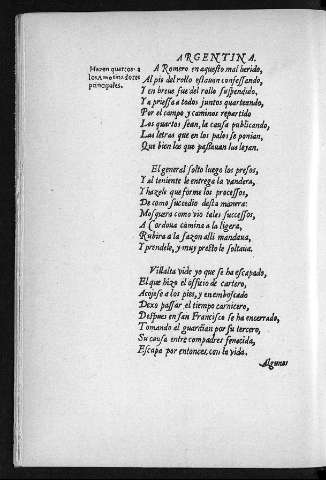 ARGENTINA.
Hazen quartos a
los amotinadores
principales.
A Romero en aquesto mal herido,
Al pie del rollo estauan confessando,
Y en breue fue del rollo suspendido,
Y a priessa a todos juntos quarteando,
Por el campo y caminos repartido
Los quartos sean, la causa publicando,
Las letras que en los palos se ponian,
Que bien los que passauan las leyan.
El general solto luego los presos,
Y al teniente le entrega la vandera,
Y hazele que forme los processos,
De como succedio desta manera:
Mosquera como vio tales successos,
A Cordoua camina a la ligera,
Rubira a la sazon alli mandaua,
Y prendelo, y muy presto le soltaua.
Villalta vide yo que se ha escapado,
El que hizo el officio de cartero,
Acojese a los pies, y enemboscado
Dexo passar el tiempo carnicero,
Despues en san Francisco se ha encerrado,
Tomando al guardian por su tercero,
Su causa entre compadres fenecida,
Escapa por entonces, con la vida.
Algunos